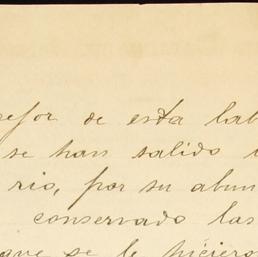 de esta
se han salido
rio, por su abun
conservado las
que se le hiciero